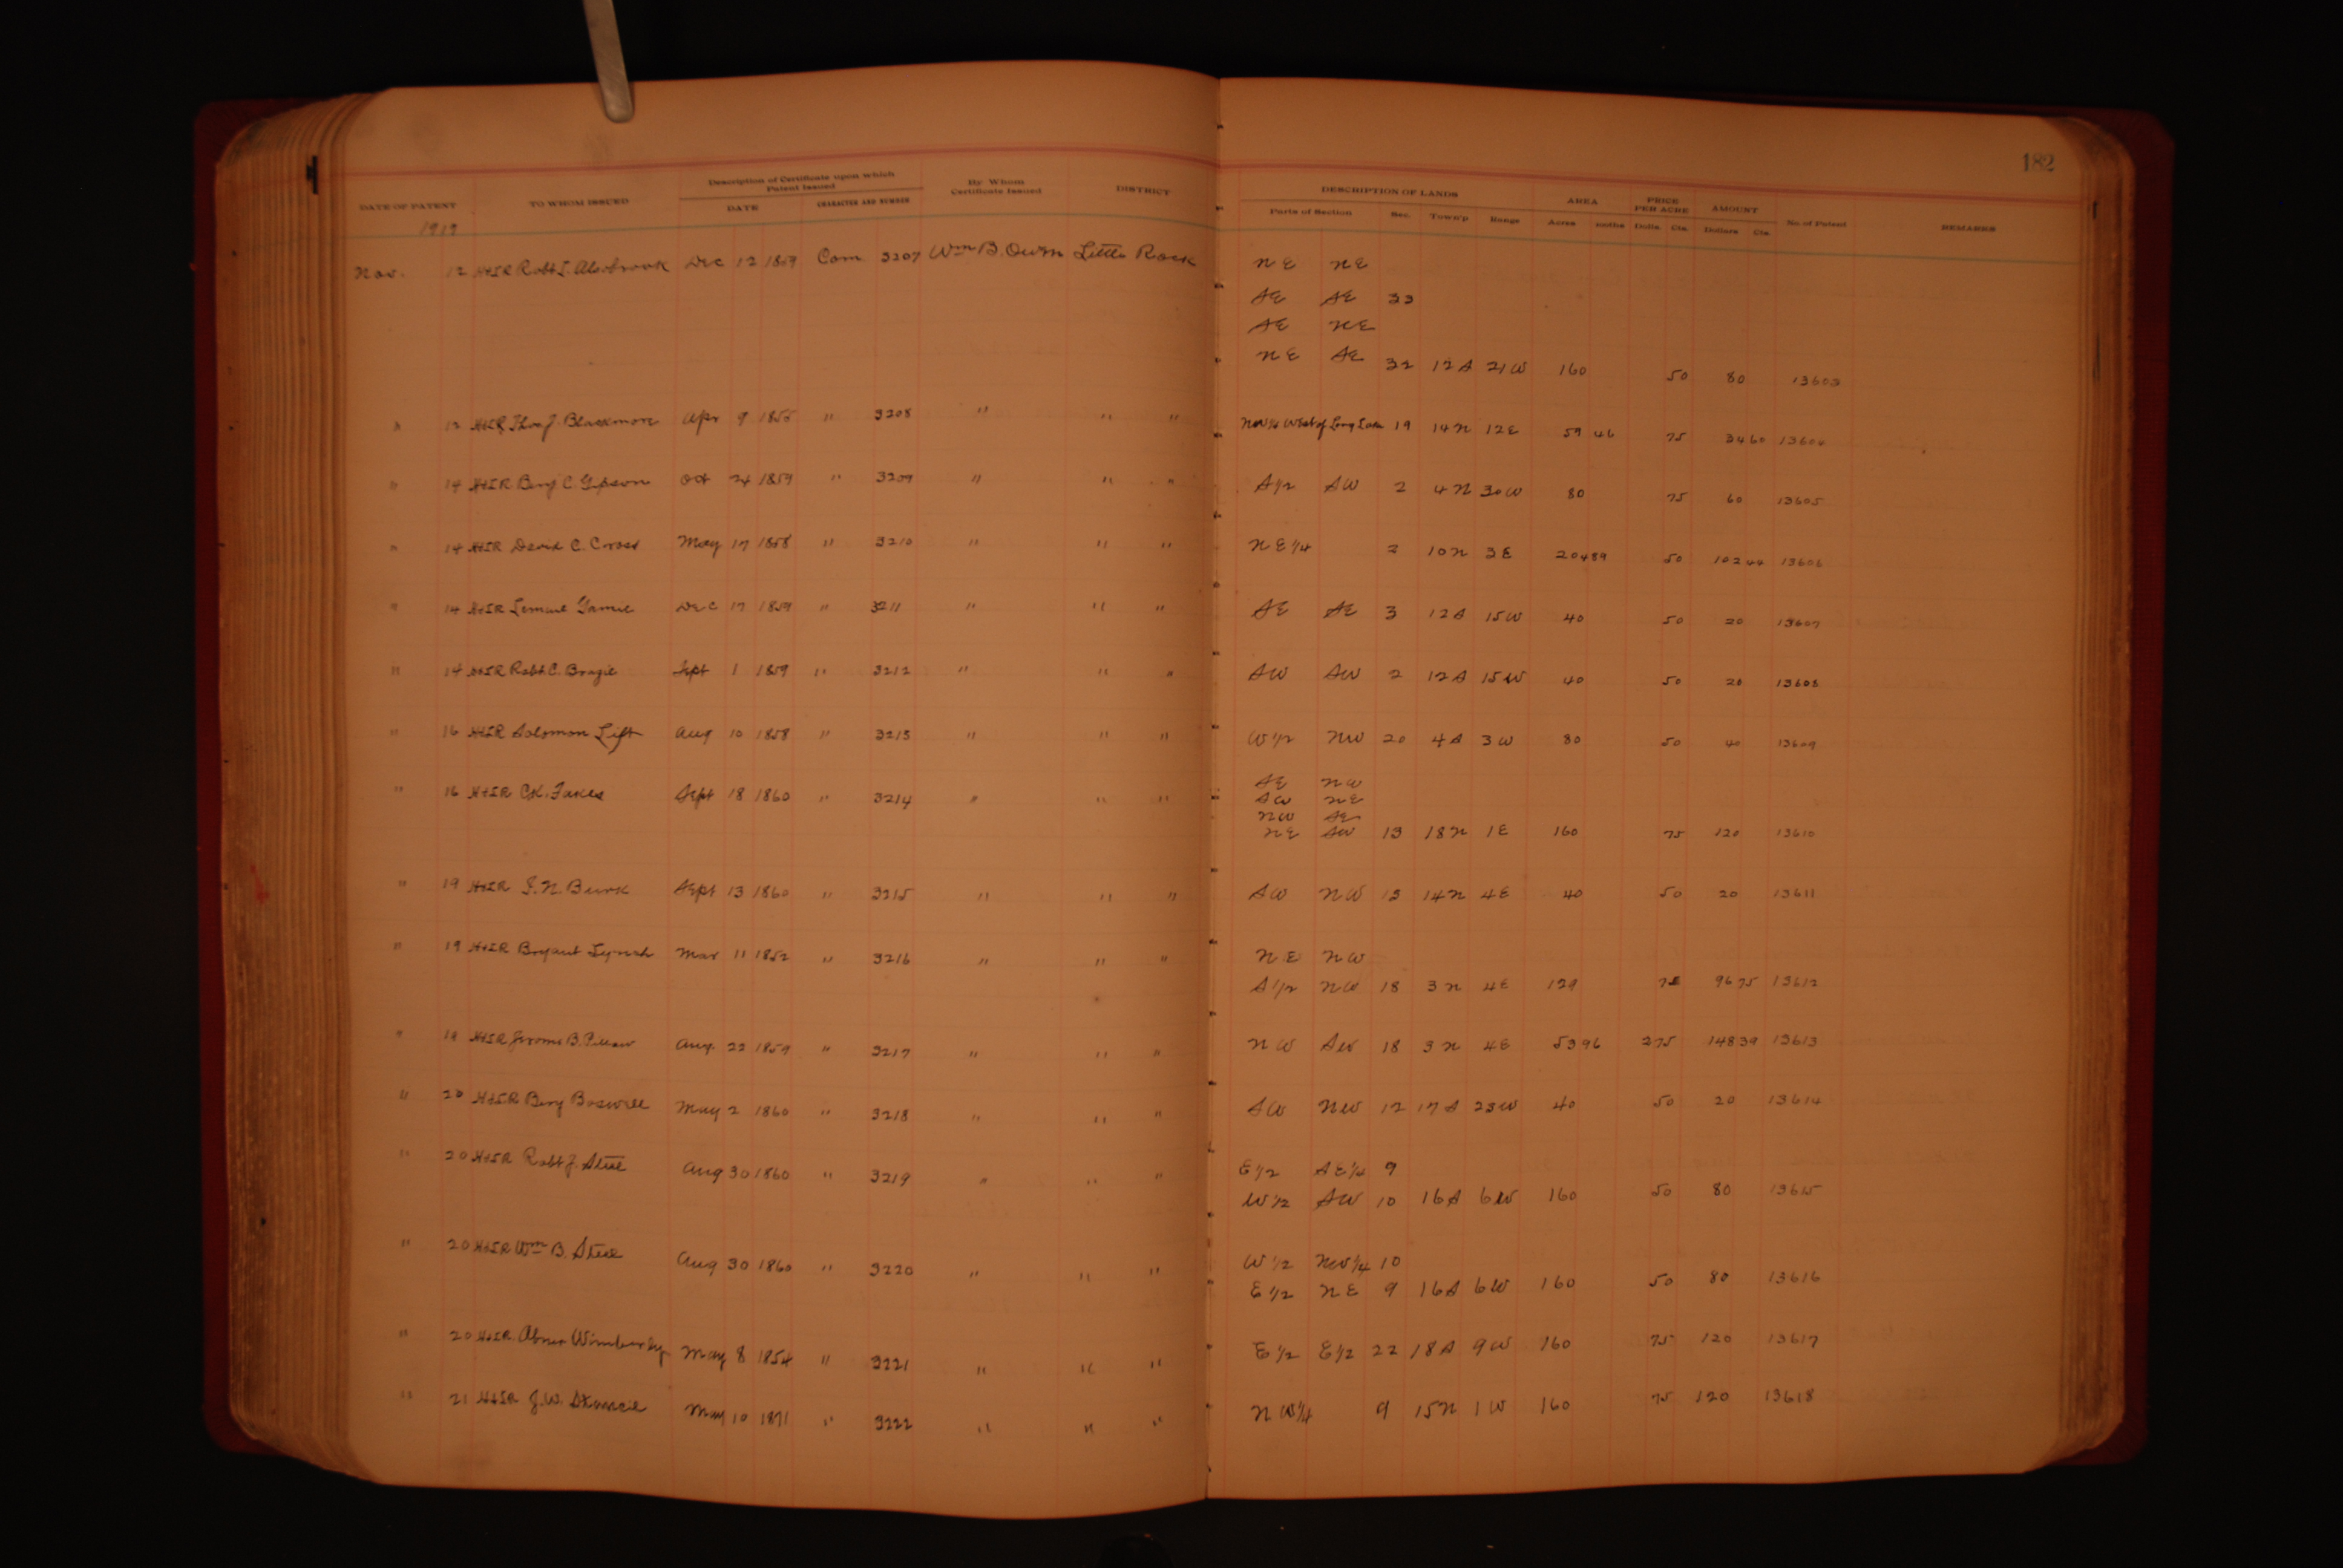 182
DATE OF PATENT TO WHOM ISSUED Description of Certificate upon which Patent Issued DATE CHARACTER AND NUMBER By Whom Certificate Issued DISTRICT DESCRIPTION OF LANDS Parts of Section Sec. Town'p Range AREA Acres PRICE PER ACRE Dolls. Cts. AMOUNT Dollars Cts. No. of Patent REMARKS
1919
Nov. 12 H&IR Robt Dec 12 1859 Com 3207 Wm B. Owen Little Rock NE NE
SE SE 33
SE NE
NE SE 32 12S 21W 160 50 80 13603
" 12 H&IR Thos J. Blackmore Apr 9 1855 " 3208 " " " NW¼ West of Long Lake 19 14N 12E 59 46 75 34 60 13604
" 14 H&IR Benj C. Gipson Oct 24 1859 " 3209 " " " S½ SW 2 4N 30W 80 75 60 13605
" 14 H&IR David C. Cross May 17 1858 " 3210 " " " NE¼ 2 10N 3E 204 89 50 102 44 13606
" 14 H&IR Dec 17 1859 " 3211 " " " SE SE 3 12S 15W 40 50 20 13607
" 14 H&IR Robt C. Sept 1 1859 " 3212 " " " SW SW 2 12S 15W 40 50 20 13608
" 16 H&IR Solomon Aug 10 1858 " 3213 " " " W½ NW 20 4S 3W 80 50 40 13609
" 16 H&IR Sept 18 1860 " 3214 " " " SE NW
SW NE
NW SE
NE SW 13 18N 1E 160 75 120 13610
" 19 H&IR Burk Sept 13 1860 " 3215 " " " SW NW 13 14N 4E 40 50 20 13611
" 19 H&IR Bryant Lynch Mar 11 1852 " 3216 " " " NE NW
S½ NW 18 3N 4E 129 75 96 75 13612
" 19 H&IR Jerome B. Pillow Aug. 22 1859 " 3217 " " " NW SW 18 3N 4E 53 96 2 75 148 39 13613
" 20 H&IR Benj Boswell May 2 1860 " 3218 " " " SW NW 12 17S 23W 40 50 20 13614
" 20 H&IR Robt J. Steel Aug 30 1860 " 3219 " " " E½ SE¼ 9
W½ SW 10 16S 6W 160 50 80 13615
" 20 H&IR Wm B. Steel Aug 30 1860 " 3220 " " " W½ NW¼ 10
E½ NE 9 16S 6W 160 50 80 13616
" 20 H&IR. Abner Wimberly May 8 1854 " 3221 " " " E½ E½ 22 18S 9W 160 75 120 13617
" 21 H&IR J.W. May 10 1871 " 3222 " " " NW¼ 9 15N 1W 160 75 120 13618